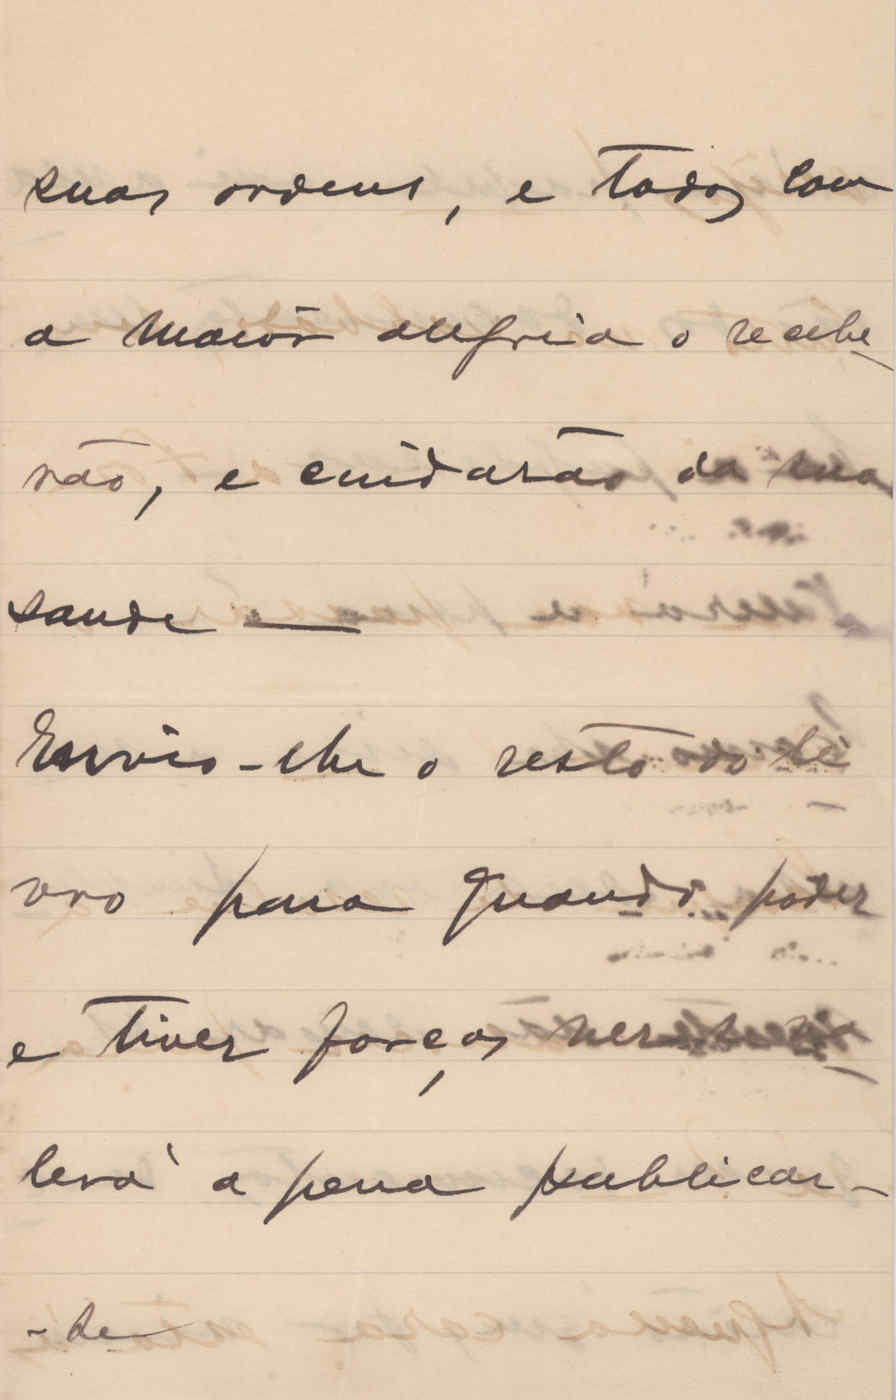 suas ordens, e todos com
a maior alegria o recebe-
rão, e cuidarão da sua
saude —
Envio-lhe o resto do li-
vro para quando poder
e tiver forças ver se
lerá a pena publicar-
-se